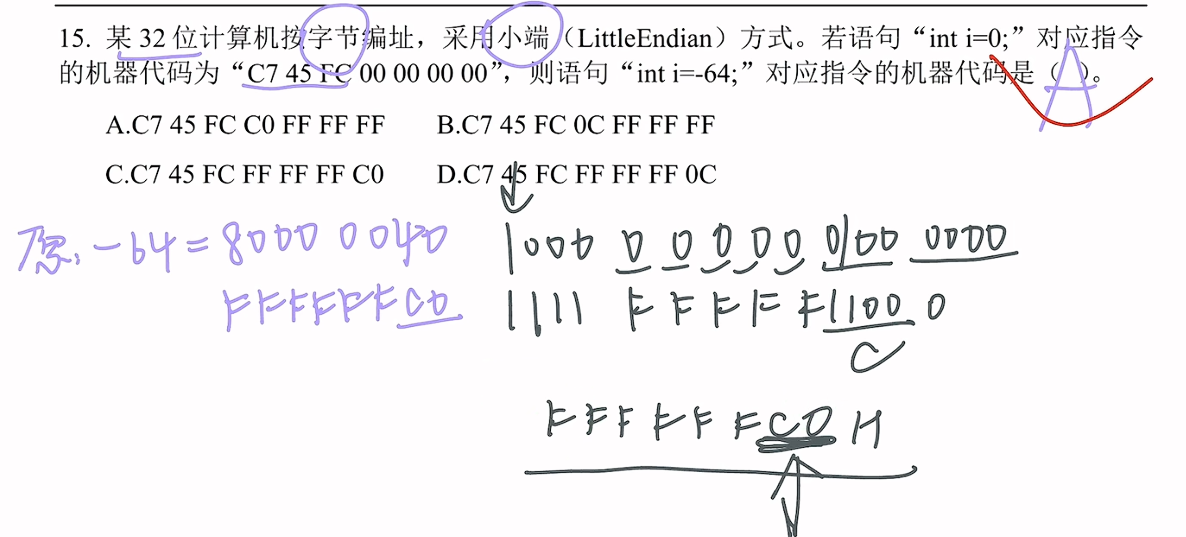 15. 某 32 位计算机按字节编址，采用小端（LittleEndian）方式。若语句“int i=0;”对应指令
的机器代码为“C7 45 FC 00 00 00 00”，则语句“int i=-64;”对应指令的机器代码是（ A ）。
A.C7 45 FC C0 FF FF FF B.C7 45 FC 0C FF FF FF
C.C7 45 FC FF FF FF C0 D.C7 45 FC FF FF FF 0C
原: -64 = 8000 0040 1000 0 0 0 0 0 0100 0000
FFFFFFC0 1111 F F F F F 1100 0
C
FFFFFFC0H